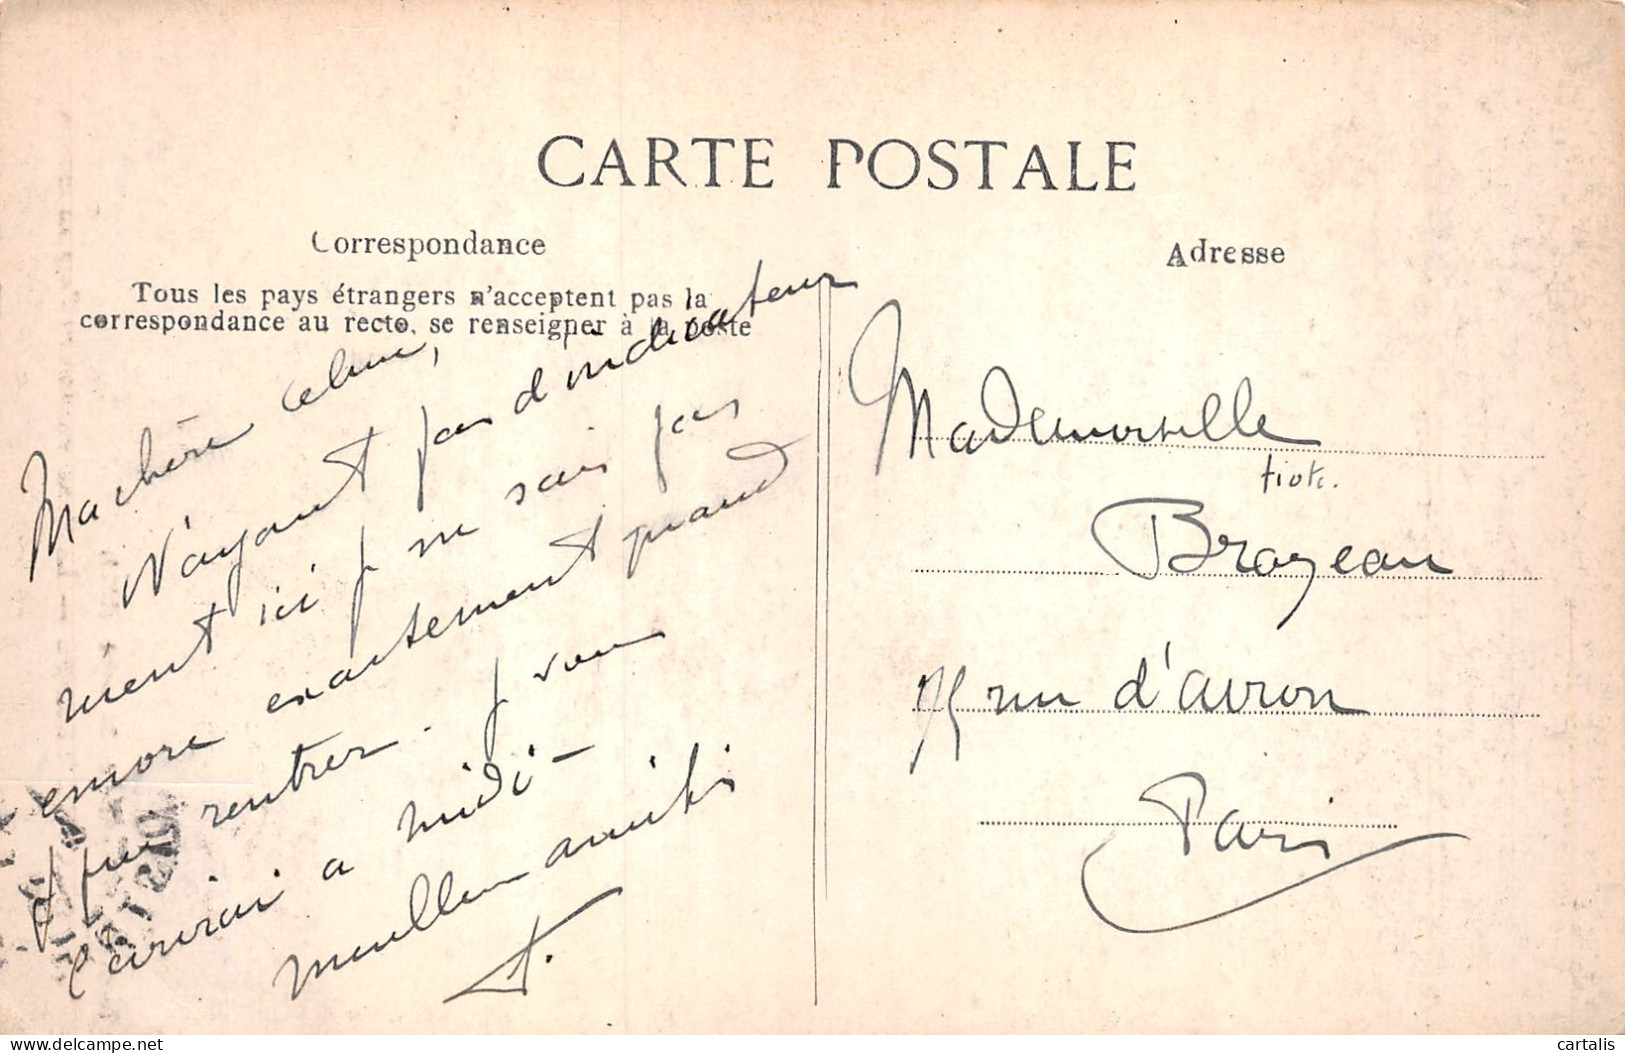 CARTE POSTALE
Correspondance
Tous les pays étrangers n'acceptent pas la
correspondance au recto, se renseigner à la poste
Ma chère
N'ayant pas d'indicateur
ici je ne sais pas
encore exactement quand
je rentrer. Je vous
écrirai a midi -
meilleures amitiés
Adresse
Mademoiselle
Brazeau
75 rue d'avron
Paris
delcampe.net
cartalis